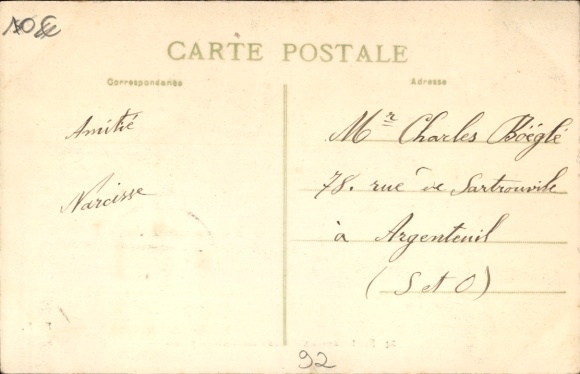 CARTE POSTALE
Correspondance
Adresse
Amitié
Narcisse
Mr Charles Boéglé
78. rue de Sartrouville
à Argenteuil
(S et O)
92